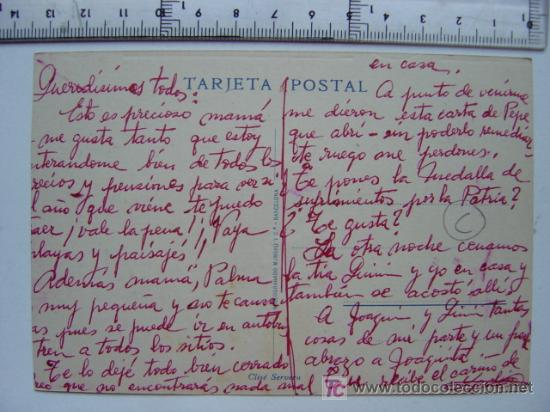 TARJETA POSTAL
Queridísimos todos:
Esto es precioso mamá
me gusta tanto que estoy
enterandome bien de todos los
precios y pensiones para ver si
el año que viene te puedo
traer ¡vale la pena!! Vaya
playas y paisajes!!
Además mamá, Palma
muy pequeña y no te causa
ras pues se puede ir en autobus
tren a todos los sitios.
Te lo dejé todo bien cerrado
creo que no encontrarás nada mal
en casa.
A punto de venirme
me dieron esta carta de Pepe
que abrí - sin poderlo remediar
te ruego me perdones.
Te pones la medalla de
sufrimientos por la Patria?
¿Te gusta?
La otra noche cenamos
la tia y yo en casa y
también se acostó allí.
A Joaquin y tantas
cosas de mi parte y un
abrazo a Joaquito
recibe el cariño de
Clisé Servera
BARCELONA
C
TC todocoleccion
0 1 2 3 4 5 6 7 8 9 10 11 12 13 14